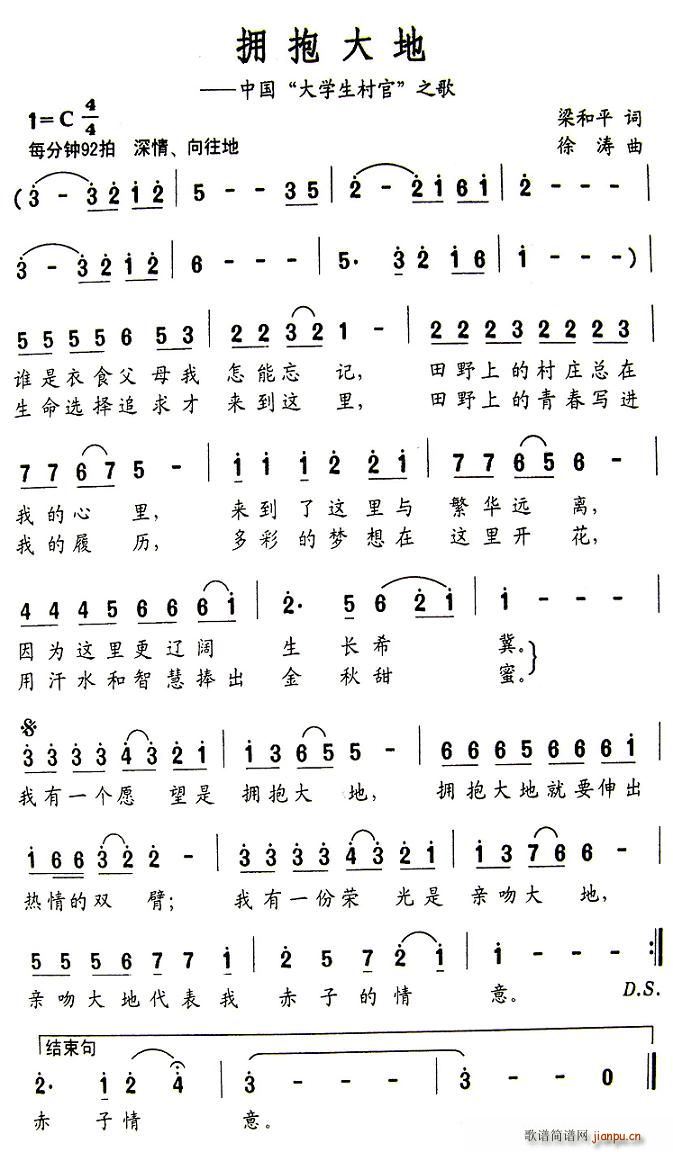 拥抱大地
——中国“大学生村官”之歌
1=C 4/4
梁和平 词
每分钟92拍 深情、向往地
徐 涛 曲
(3 - 3 2 1 2 | 5 - - 3 5 | 2 - 2 1 6 1 | 2 - - - |
3 - 3 2 1 2 | 6 - - - | 5. 3 2 1 6 | 1 - - - ) |
5 5 5 5 6 5 3 | 2 2 3 2 1 - | 2 2 2 2 3 2 2 2 3 |
谁是衣食父母我 怎能忘 记, 田野上的村庄总在
生命选择追求才 来到这 里, 田野上的青春写进
7 7 6 7 5 - | 1 1 1 2 2 2 1 | 7 7 6 5 6 - |
我的心 里, 来到了这里与 繁华远 离,
我的履 历, 多彩的梦想在 这里开 花,
4 4 4 5 6 6 6 1 | 2. 5 6 2 1 | 1 - - - |
因为这里更辽阔 生 长希 冀。
用汗水和智慧捧出 金 秋甜 蜜。
3 3 3 3 4 3 2 1 | 1 3 6 5 5 - | 6 6 6 5 6 6 6 1 |
我有一个愿 望是 拥抱大 地, 拥抱大地就要伸出
1 6 6 3 2 2 - | 3 3 3 3 4 3 2 1 | 1 3 7 6 6 - |
热情的双 臂; 我有一份荣 光是 亲吻大 地,
5 5 5 6 7 7 1 | 2 5 7 2 1 | 1 - - - :||
亲吻大地代表我 赤子的情 意。 D.S.
结束句
2. 1 2 4 | 3 - - - | 3 - - 0 ||
赤 子情 意。
歌谱简谱网 jianpu.cn